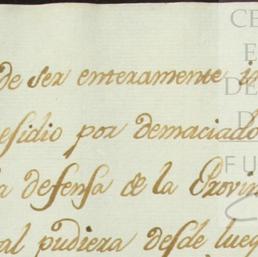 de ser enteramente
esidio por demaciado
defensa de la Provin
al pudiera desde lueg
CE
E
DE
D
FU